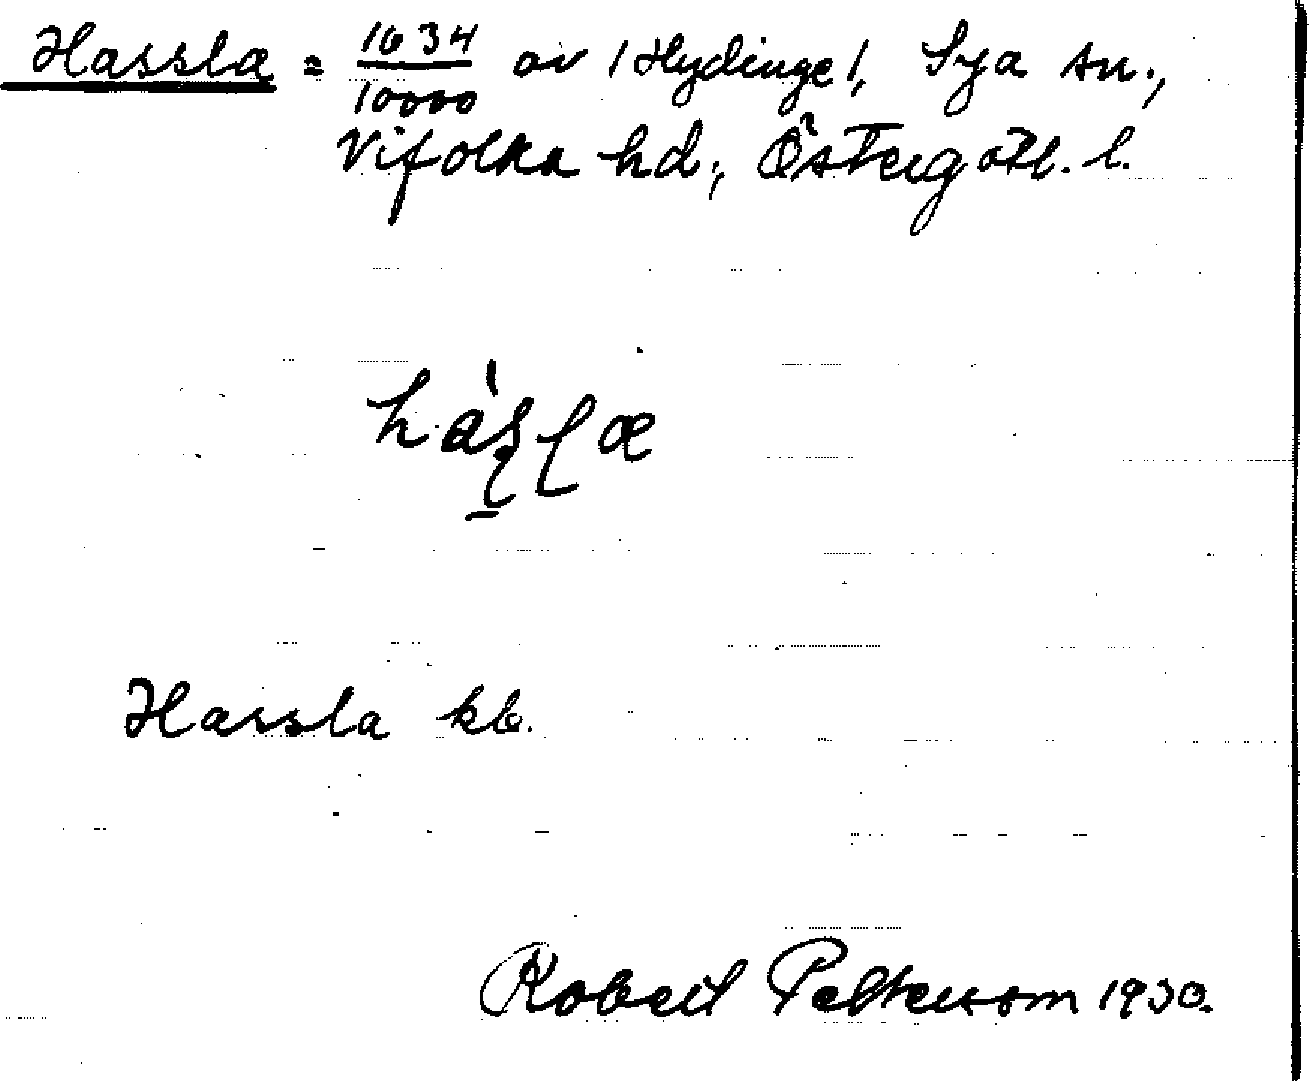 Hassla = 1634/10000 av /Hydinge/, Sya sn.,
Vifolka hd., Östergötl. l.
Hassla kb.
Robert Petterson 1930.